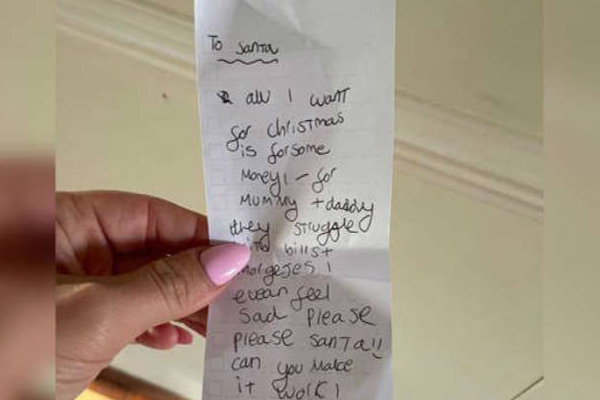 To Santa
all I want
for christmas
is forsome
Money! - for
MUMMY + daddy
they struggle
bills +
morgeses I
evean feel
Sad Please
Please Santa!!
can you Make
it work!